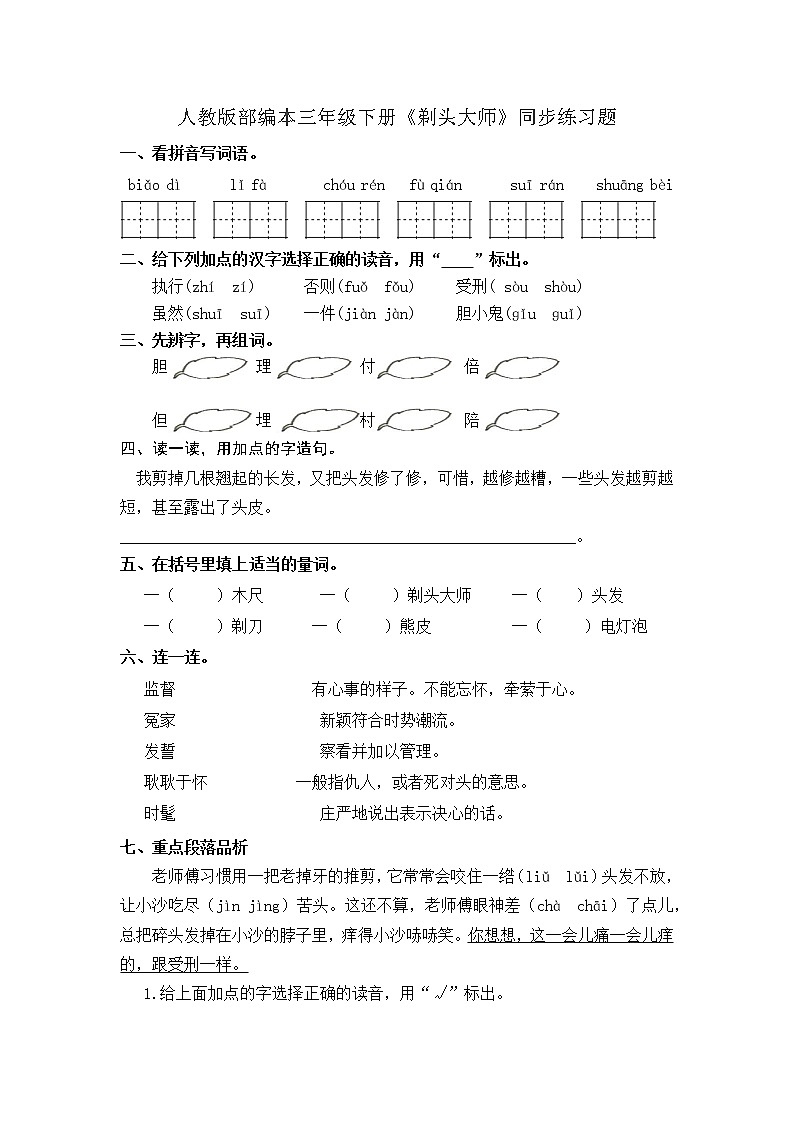 人教版部编本三年级下册《剃头大师》同步练习题
一、看拼音写词语。
biǎo dì lǐ fà chóu rén fù qián suī rán shuāng bèi
二、给下列加点的汉字选择正确的读音，用“____”标出。
执行(zhí zí) 否则(fuǒ fǒu) 受刑( sòu shòu)
虽然(shuī suī) 一件(jiàn jàn) 胆小鬼(gǐu guǐ)
三、先辨字，再组词。
胆 理 付 倍
但 埋 村 陪
四、读一读，用加点的字造句。
我剪掉几根翘起的长发，又把头发修了修，可惜，越修越糟，一些头发越剪越
短，甚至露出了头皮。
。
五、在括号里填上适当的量词。
一（ ）木尺 一（ ）剃头大师 一（ ）头发
一（ ）剃刀 一（ ）熊皮 一（ ）电灯泡
六、连一连。
监督 有心事的样子。不能忘怀，牵萦于心。
冤家 新颖符合时势潮流。
发誓 察看并加以管理。
耿耿于怀 一般指仇人，或者死对头的意思。
时髦 庄严地说出表示决心的话。
七、重点段落品析
老师傅习惯用一把老掉牙的推剪，它常常会咬住一绺(liǔ lǔi)头发不放，
让小沙吃尽（jìn jìng）苦头。这还不算，老师傅眼神差（chà chāi）了点儿，
总把碎头发掉在小沙的脖子里，痒得小沙哧哧笑。你想想，这一会儿痛一会儿痒
的，跟受刑一样。
1.给上面加点的字选择正确的读音，用“√”标出。